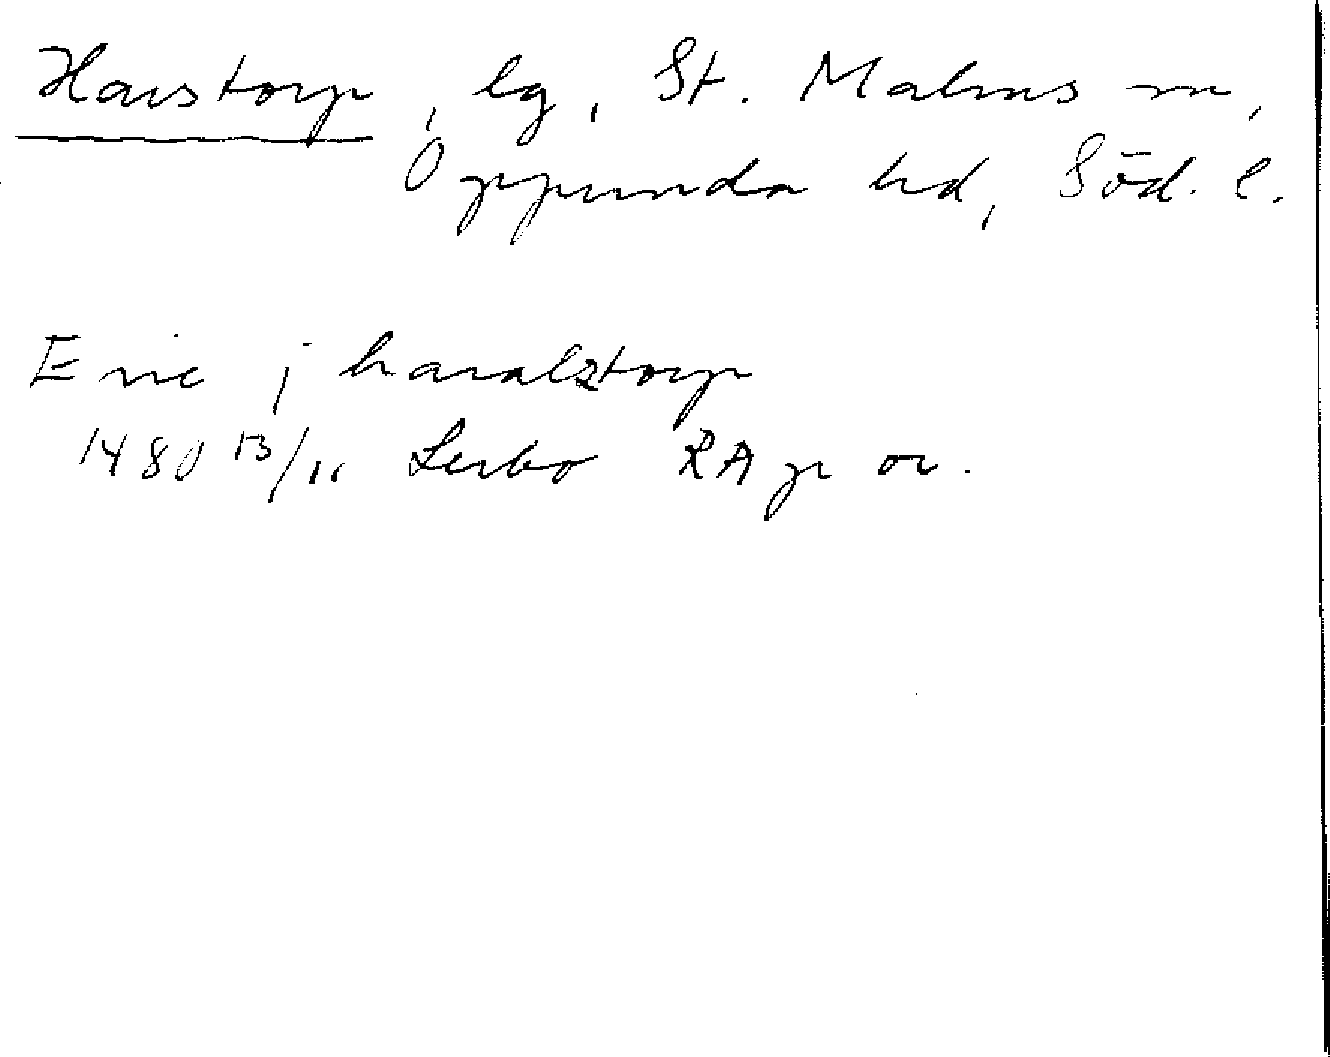 Harstorp, lg, St. Malms sn,
Oppunda hd, Söd. l.
Eric j haralztorp
1480 13/11 Lerbo RA p or.